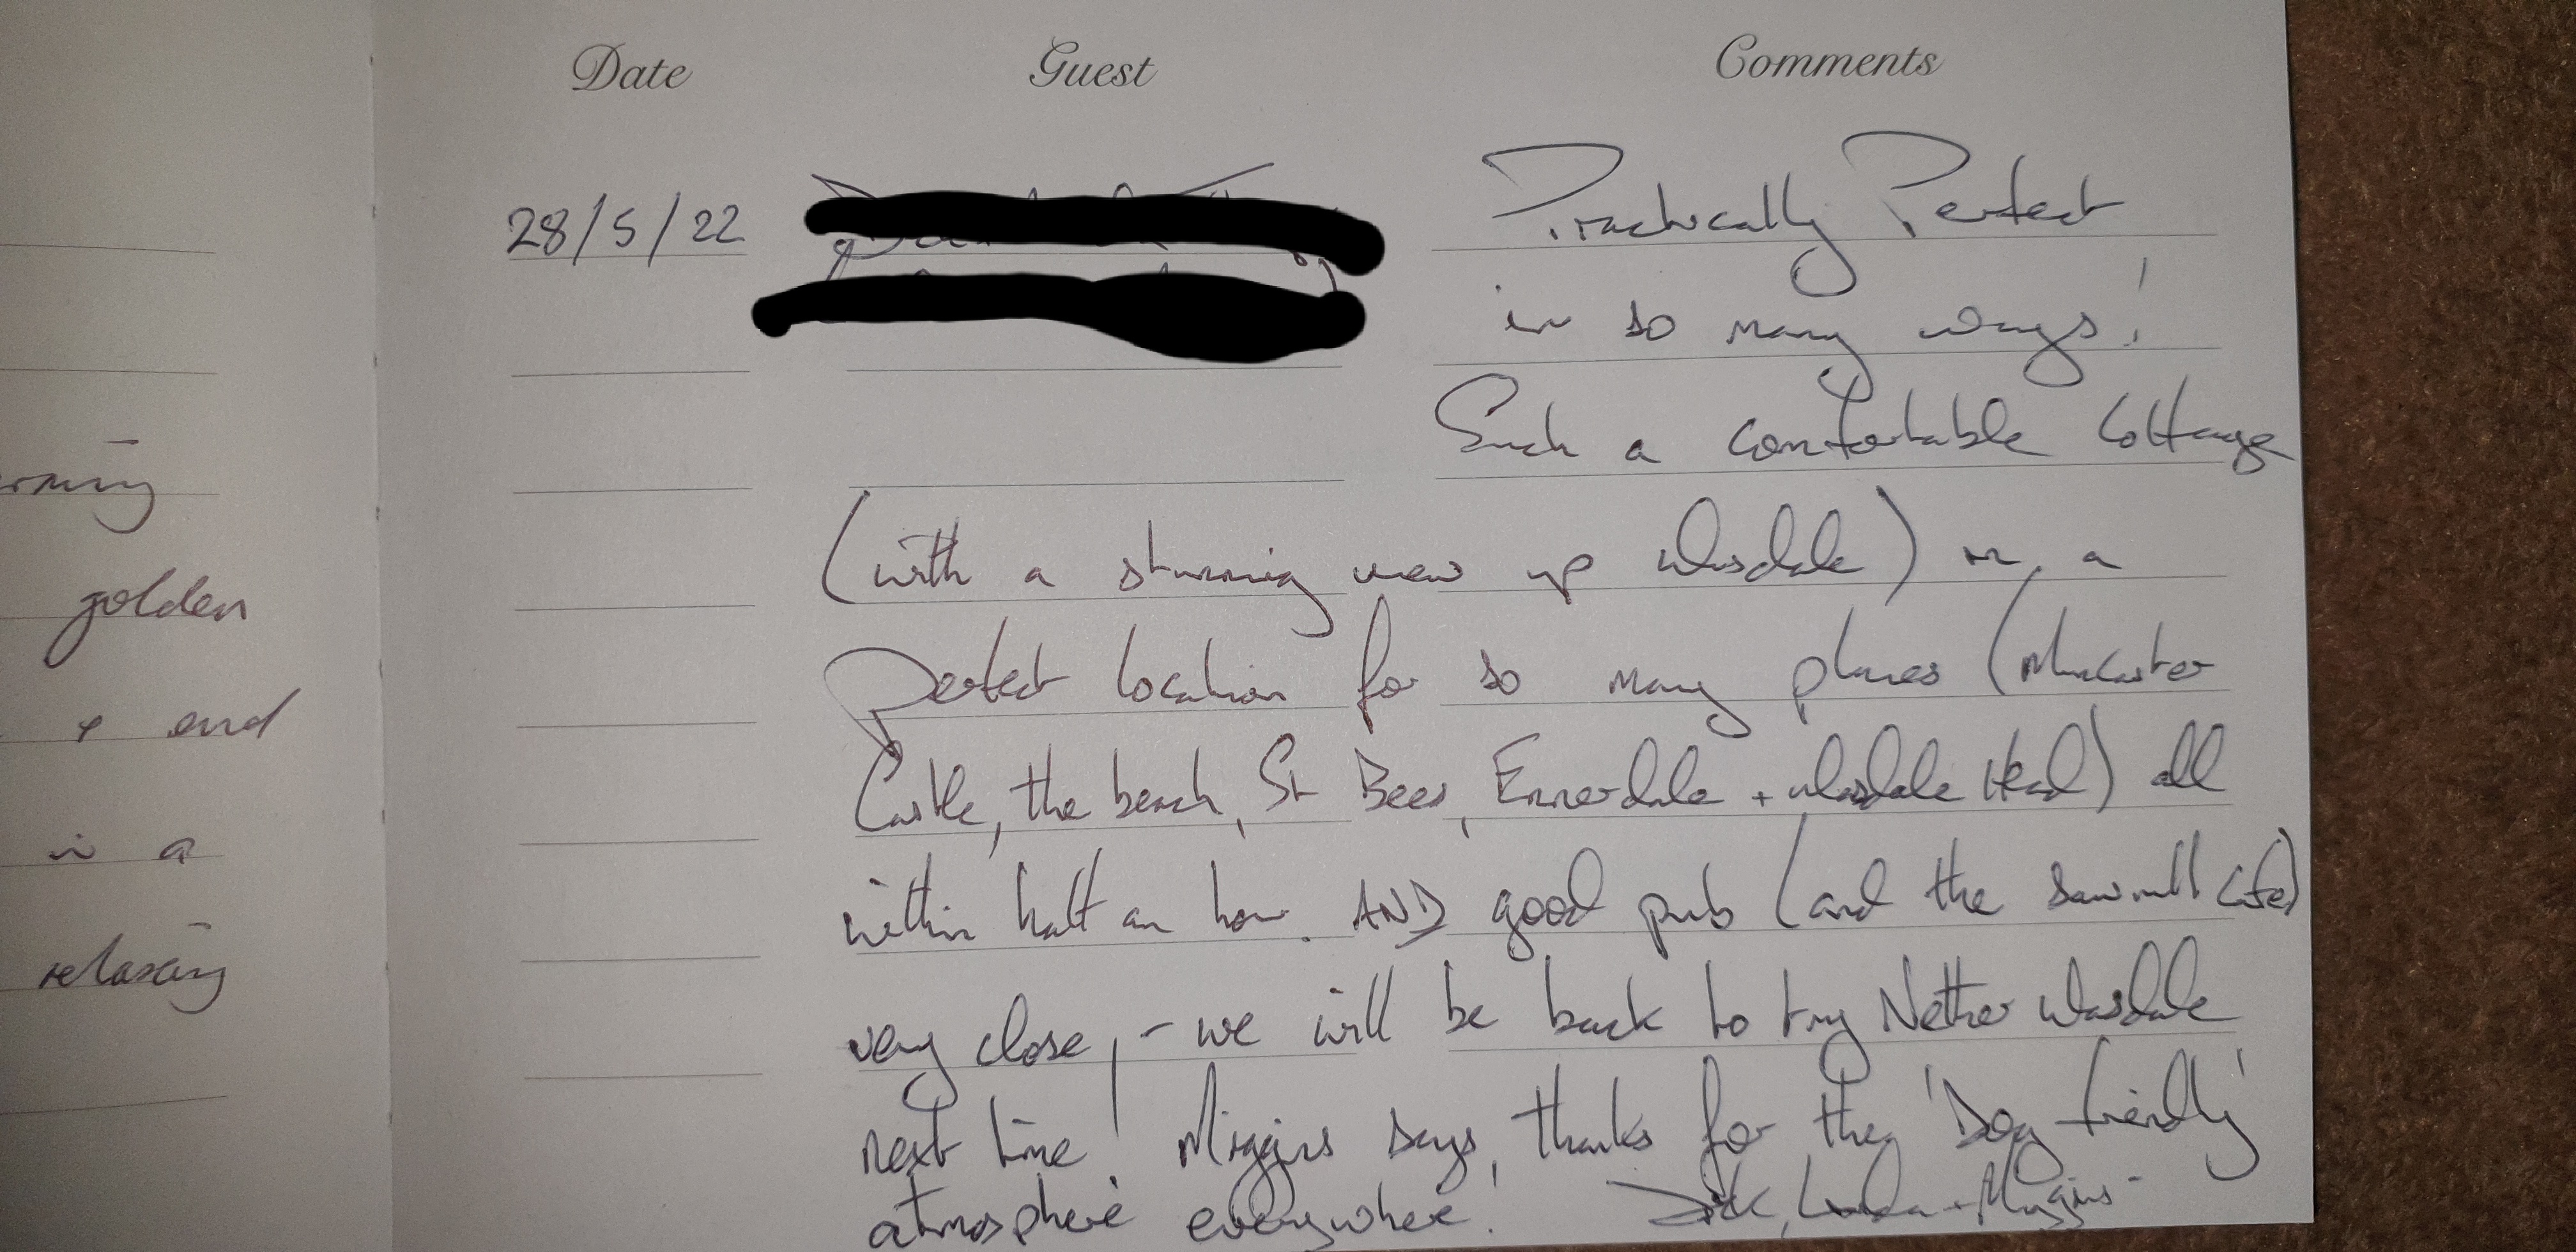 Date Guest Comments
28/5/22 Practically Perfect
in so many ways!
Such a comfortable Cottage
(with a stunning view up Wasdale) in a
perfect location for so many places (Muncaster
Castle, the beach, St Bees, Ennerdale + Wasdale Head) all
within half an hour. AND good pub (and the Sawmill Cafe)
very close, - we will be back to try Nether Wasdale
next time! Miggins says, thanks for the 'Dog friendly'
atmosphere everywhere! Dick, Linda + Miggins
golden
+ end
in a
relaxing